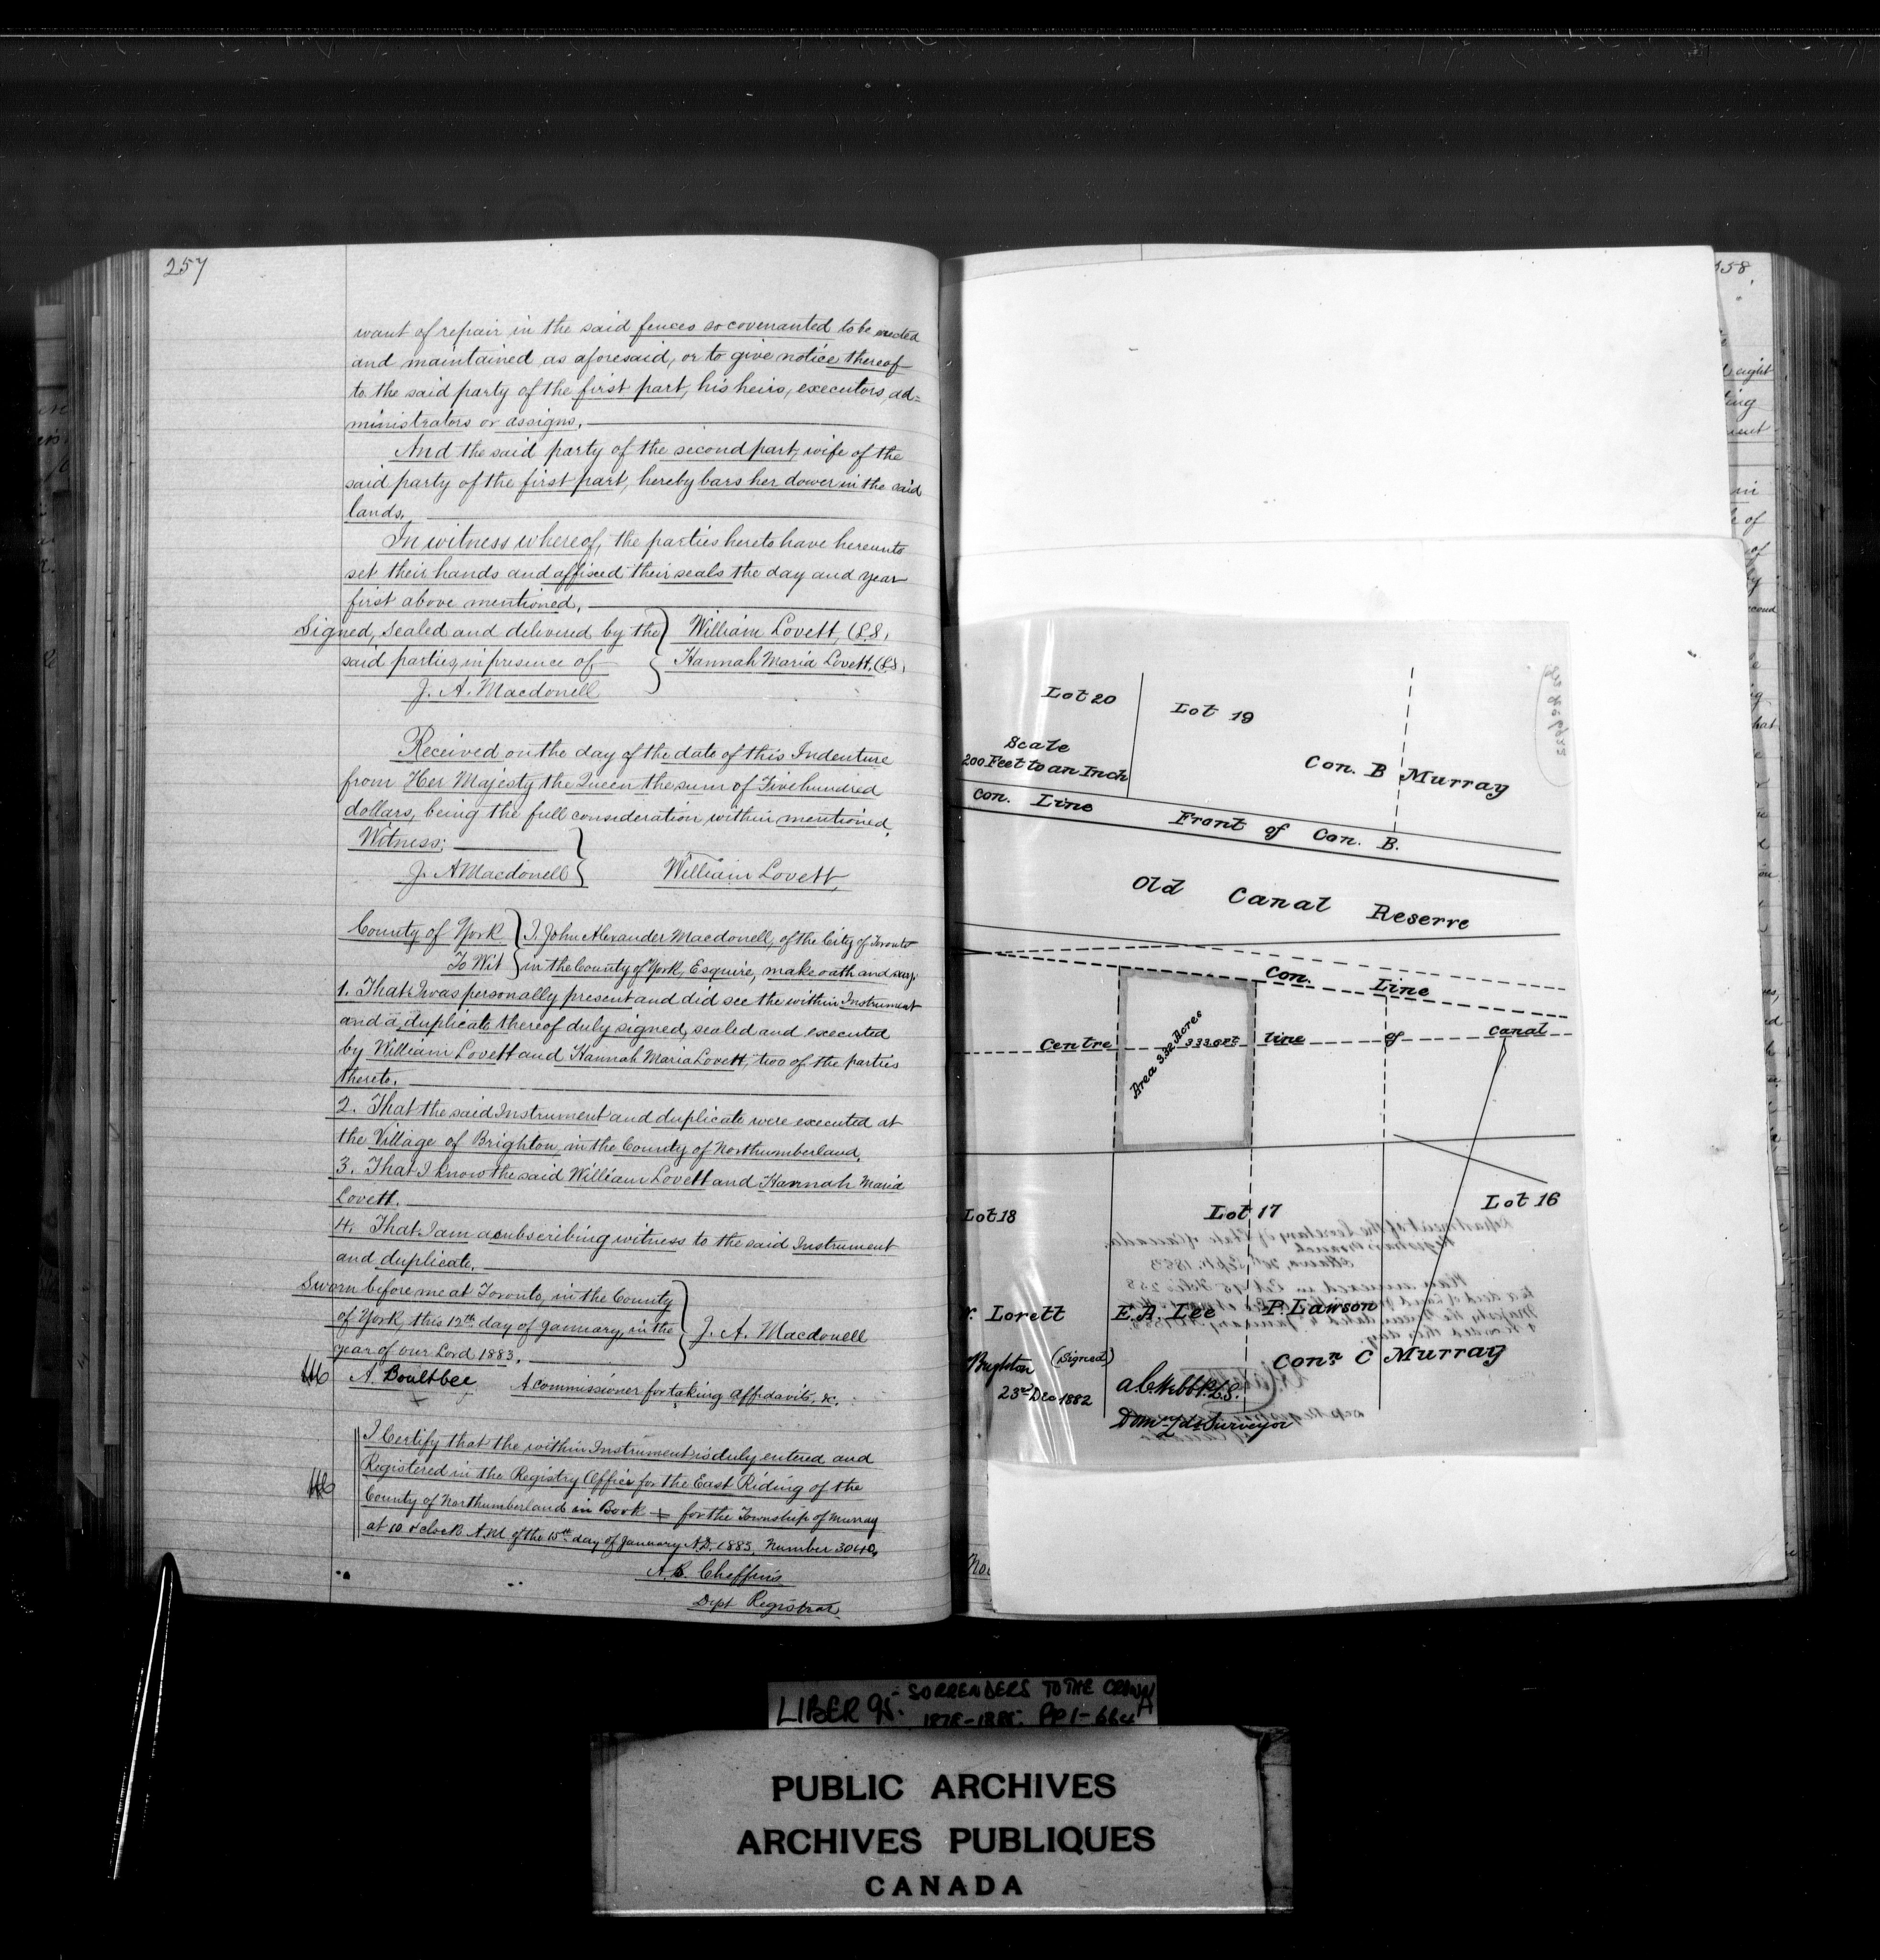 257
want of repair in the said fences so covenanted to be erected
and maintained as aforesaid, or to give notice thereof
to the said party of the first part, his heirs, executors, ad=
ministrators or assigns.
And the said party of the second part, wife of the
said party of the first part, hereby bars her dower in the said
lands.
In witness whereof, the parties hereto have hereunto
set their hands and affixed their seals the day and year
first above mentioned.
Signed, Sealed and delivered by the } William Lovett, (L.S.
said parties, in presence of } Hannah Maria Lovett. (L.S.
J. A. Macdonell
Received on the day of the date of this Indenture
from Her Majesty the Queen the sum of Five hundred
dollars, being the full consideration within mentioned.
Witness:
J. A Macdonell } William Lovett
County of York } I, John Alexander Macdonell, of the City of Toronto
To Wit } in the County of York, Esquire, make oath and say:
1. That I was personally present and did see the within Instrument
and a duplicate thereof duly signed, sealed and executed
by William Lovett and Hannah Maria Lovett, two of the parties
thereto.
2. That the said Instrument and duplicate were executed at
the Village of Brighton, in the County of Northumberland.
3. That I know the said William Lovett and Hannah Maria
Lovett.
4. That I am a subscribing witness to the said Instrument
and duplicate.
Sworn before me at Toronto, in the County
of York, this 12th day of January, in the } J. A. Macdonell
year of our Lord 1883.
A. Boultbee A commissioner for taking affidavits, &c.
I Certify that the within Instrument is duly entered and
Registered in the Registry Office for the East Riding of the
County of Northumberland in Book I for the Township of Murray
at 10 o'clock A.M. of the 15th day of January A.D. 1883, Number 3040,
A. B. Cheffins
Dept Registrar
258
Lot 20
Lot 19
Scale
200 Feet to an Inch
Con. B Murray
Con. Line
Front of Con. B.
Old Canal Reserve
Con. Line
Centre line of canal
333 0 FT
Area 3.32 Acres
Lot 18
Lot 17
Lot 16
Lovett
E.A. Lee
P. Lawson
Brighton
(Signed)
23rd Dec 1882
Conn. C Murray
A.C. Webb P.L.S.
Domn Lds Surveyor
LIBER 95. SURRENDERS TO THE CROWN
1878-1885. PP 1-664A
PUBLIC ARCHIVES
ARCHIVES PUBLIQUES
CANADA